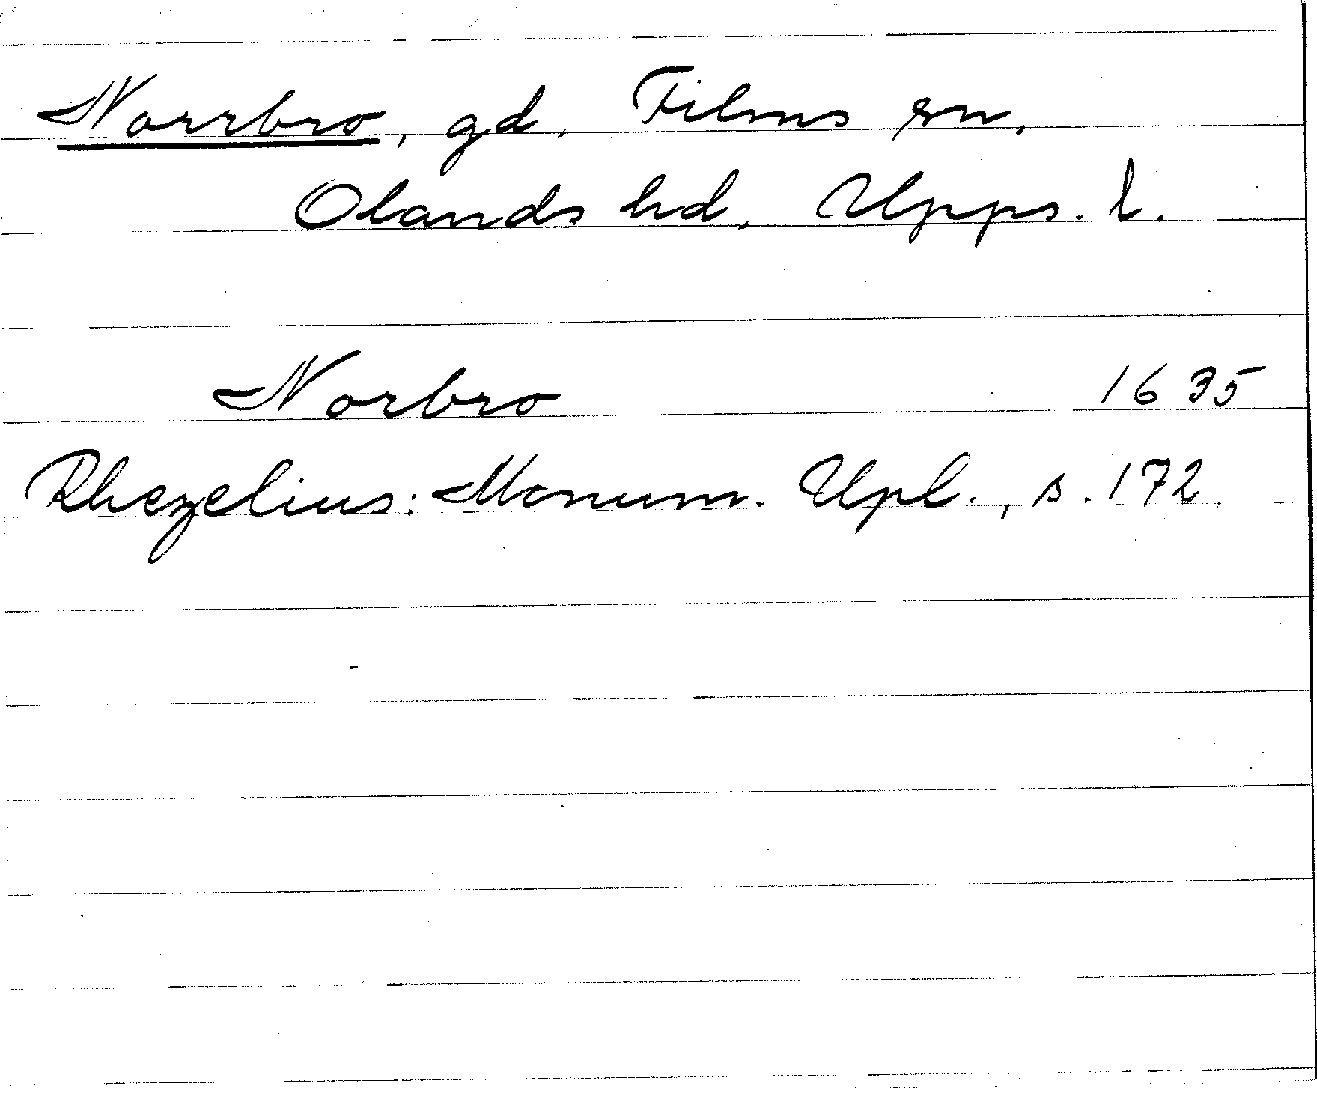 Norrbro, gd. Films sn,
Olands hd, Upps. l.
Norbro 1635
Rhezelius: Monum. Upl., s. 172.